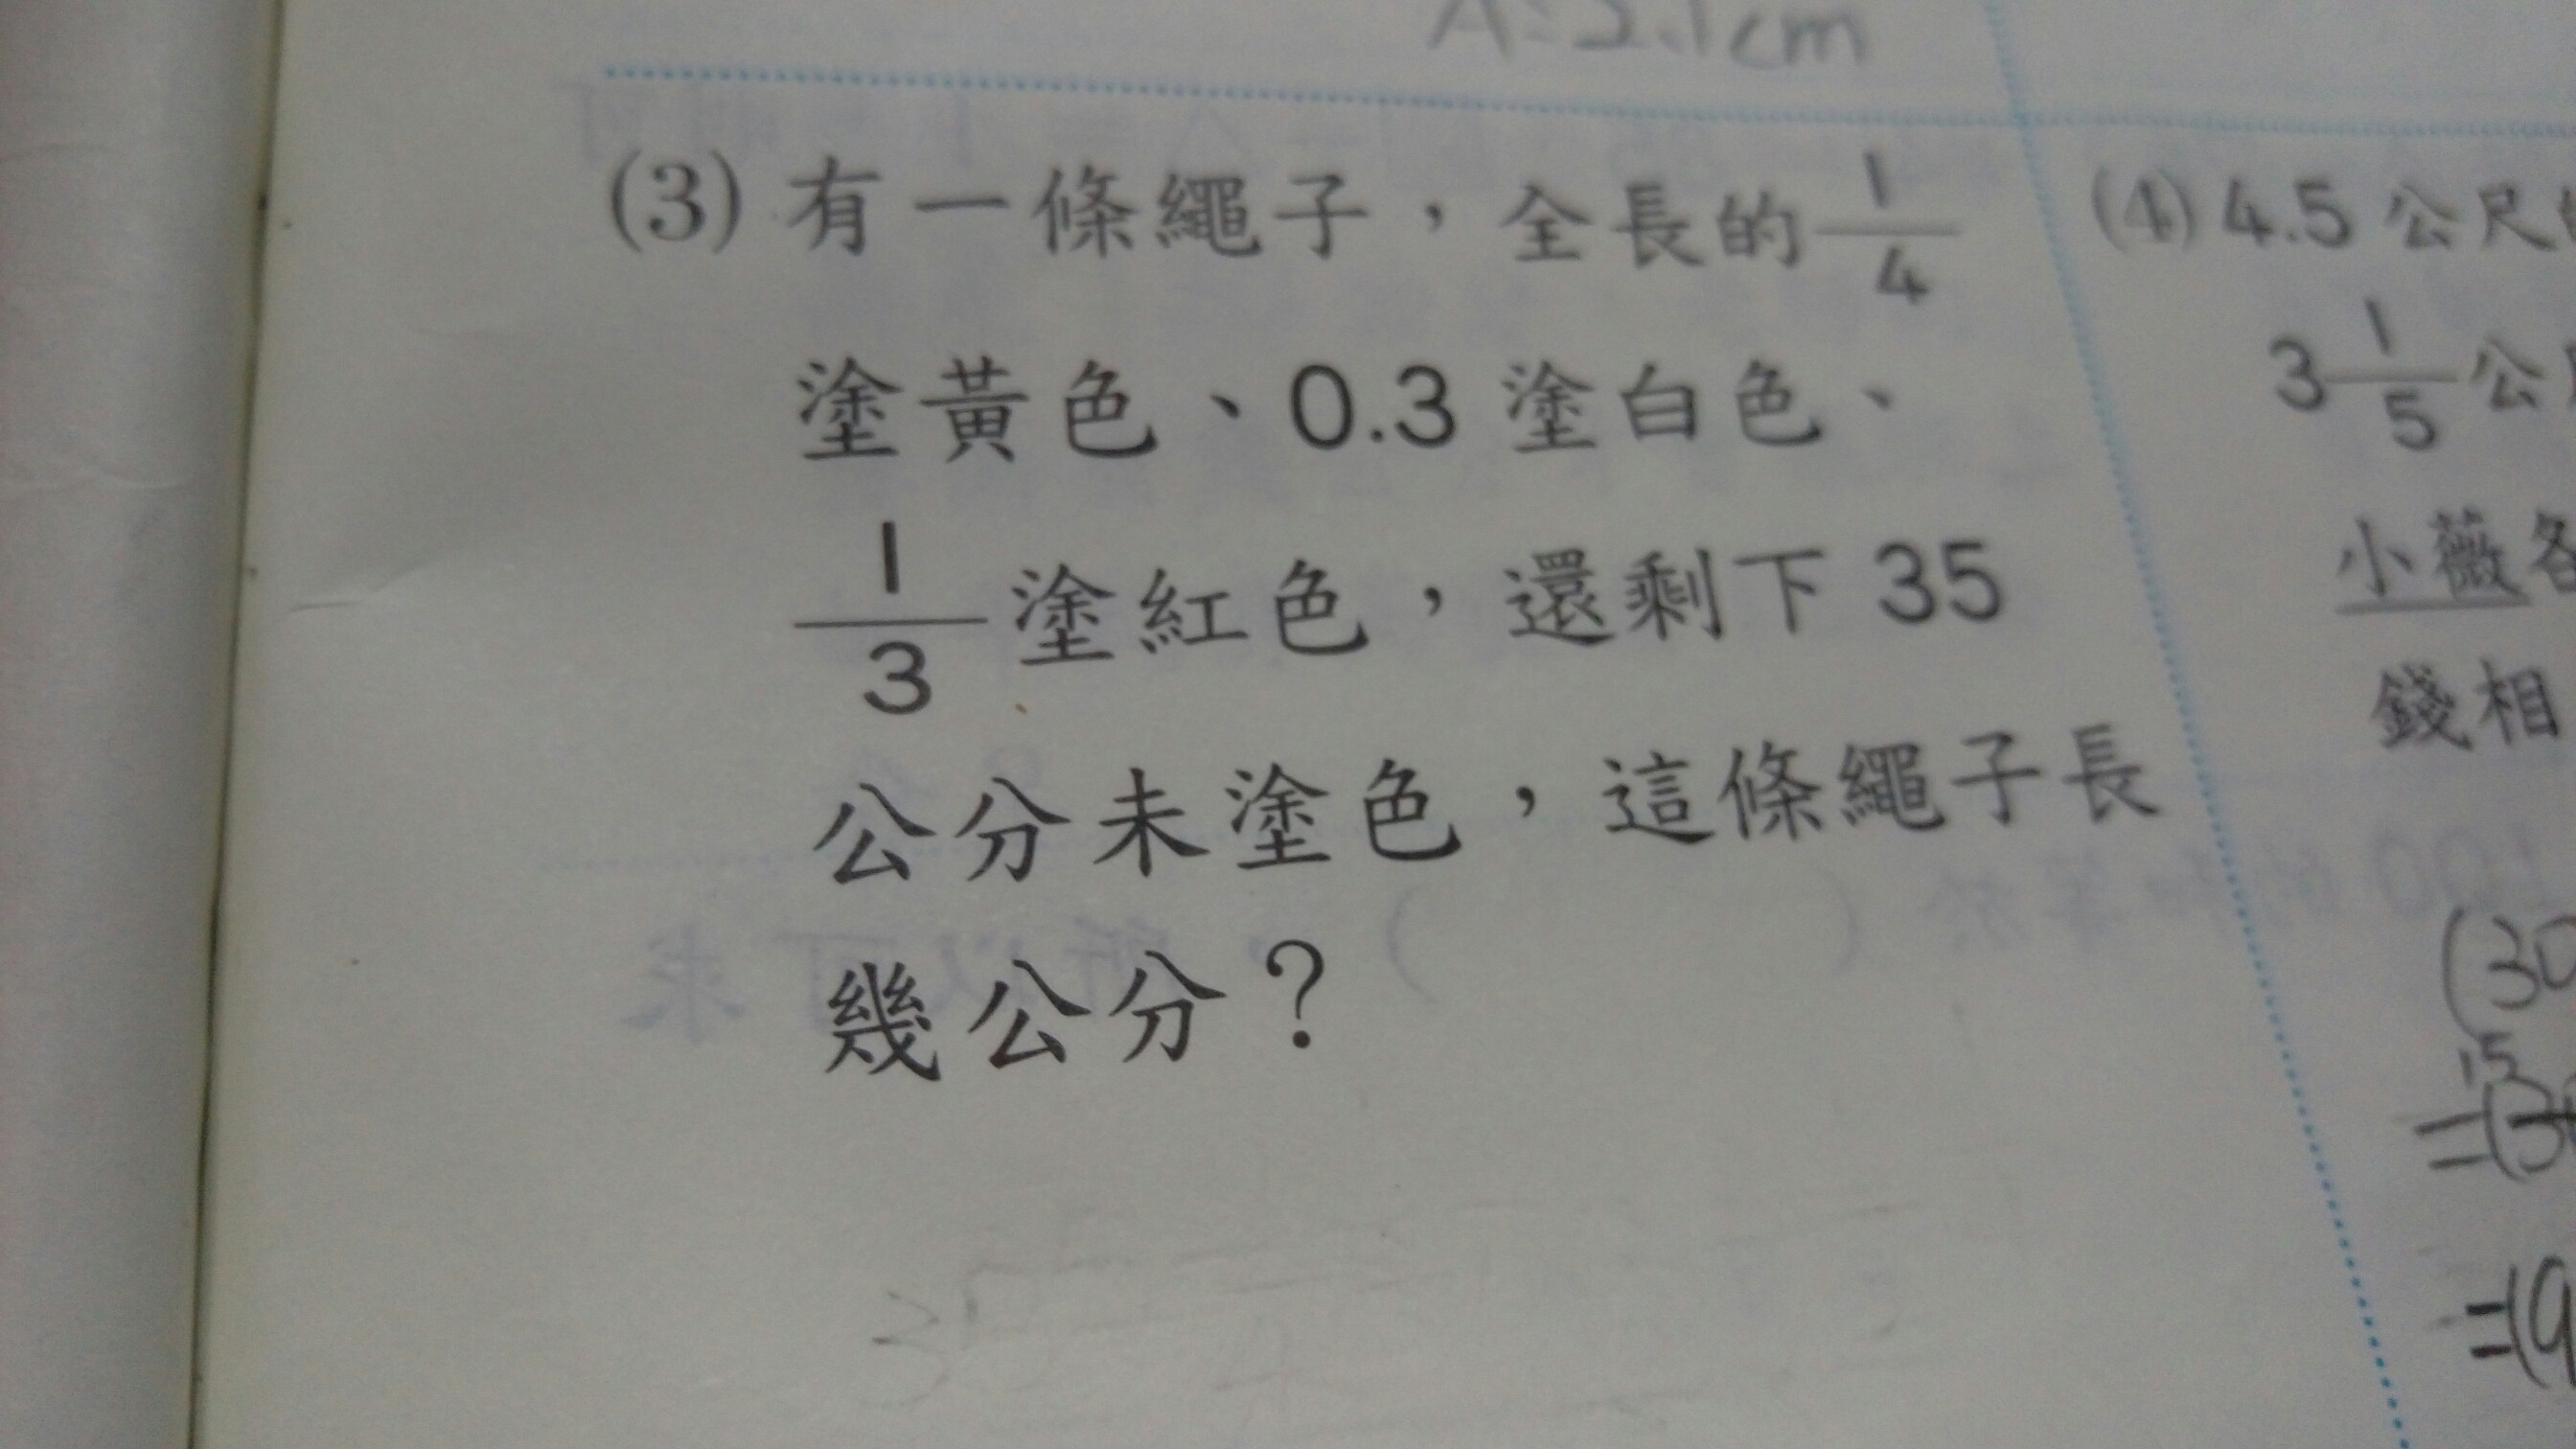 A:2.1cm
(3) 有一條繩子，全長的 1/4
塗黃色、0.3 塗白色、
1/3 塗紅色，還剩下 35
公分未塗色，這條繩子長
幾公分？
(4) 4.5 公尺
3 1/5 公
小薇各
錢相
(30
15
=(3
=(9